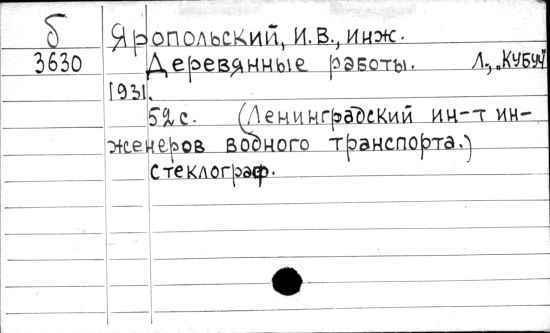 б
Яропольский, И.В., инж.
3630 Деревянные работы. Л., „КУБУЧ"
1931.
52 с. (Ленинградский ин-т ин-
женеров водного транспорта.)
стеклограф.